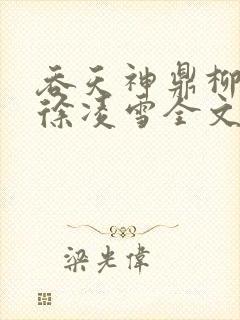 吞天神鼎柳
徐凌雪全文
梁光偉